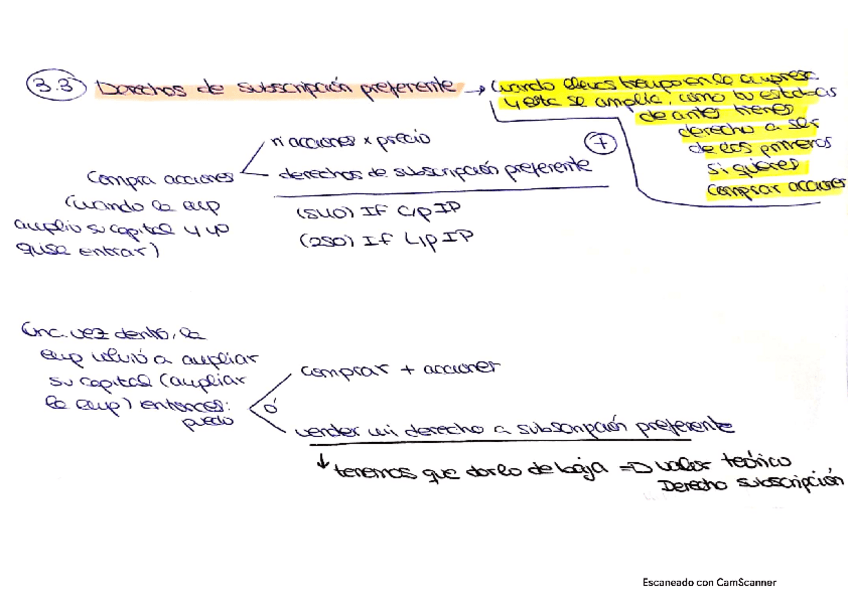 3.3 Derechos de subscripción preferente → Cuando llevas tiempo en la empresa
y esta se amplía, como tu estabas
de antes tienes
derecho a ser
de los primeros
si quieres
comprar acciones
nº acciones x precio
+
Compra acciones
derechos de subscripción preferente
Cuando la emp
amplió su capital y yo
quise entrar)
(540) If C/p IP
(250) If L/p IP
Una vez dentro, la
emp volvió a ampliar
su capital (ampliar
la emp) entonces:
puedo
comprar + acciones
ó
vender mi derecho a subscripción preferente
↓ tenemos que darlo de baja => valor teórico
Derecho subscripción
Escaneado con CamScanner